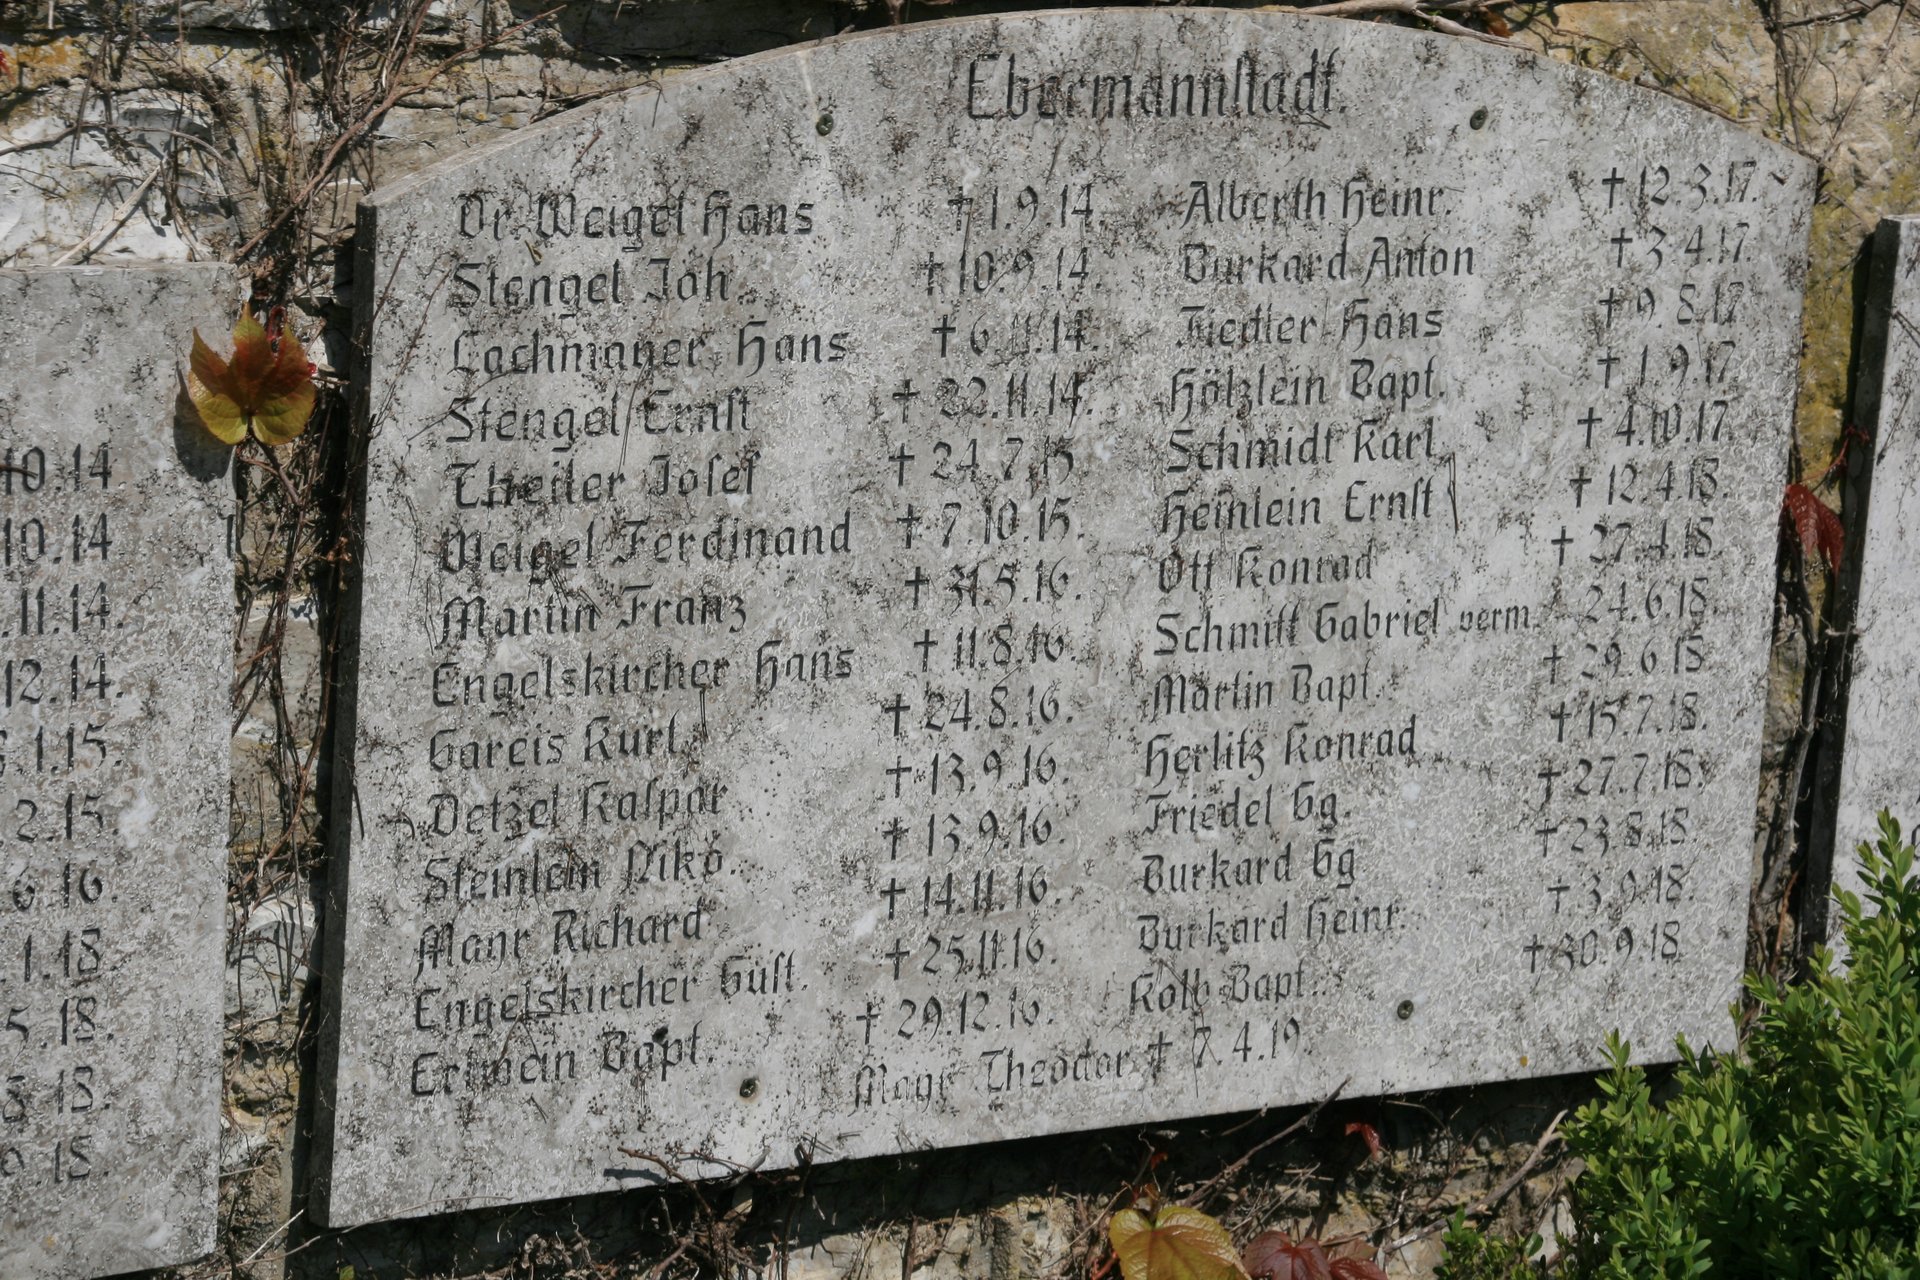 Ebermannstadt.
Dr. Weigel Hans † 1.9.14.
Stengel Joh. † 10.9.14.
Lachmayer Hans † 6.11.14.
Stengel Ernst † 22.11.14.
Theiler Josef † 24.7.15
Weigel Ferdinand † 7.10.15.
Martin Franz † 31.5.16.
Engelskircher Hans † 11.8.16.
Gareis Kurt † 24.8.16.
Detzel Kaspar † 13.9.16.
Steinlein Niko. † 13.9.16.
Mayr Richard † 14.11.16.
Engelskircher Gust. † 25.11.16.
Ertwein Bapt. † 29.12.16.
Alberth Heinr. † 12.3.17.
Burkard Anton † 3.4.17.
Fiedler Hans † 9.8.17
Hölzlein Bapt. † 1.9.17
Schmidt Karl † 4.10.17.
Heinlein Ernst † 12.4.18.
Ott Konrad † 27.4.18.
Schmitt Gabriel verm. 24.6.18.
Martin Bapt. † 29.6.18
Herlitz Konrad † 15.7.18.
Friedel Gg. † 27.7.18.
Burkard Gg † 23.8.18.
Burkard Heinr. † 3.9.18.
Kolb Bapt. † 30.9.18.
Mayr Theodor † 7.4.19.
10.14
10.14
.11.14.
12.14.
.1.15.
2.15.
6.16.
.1.18.
5.18.
18.
9.18.